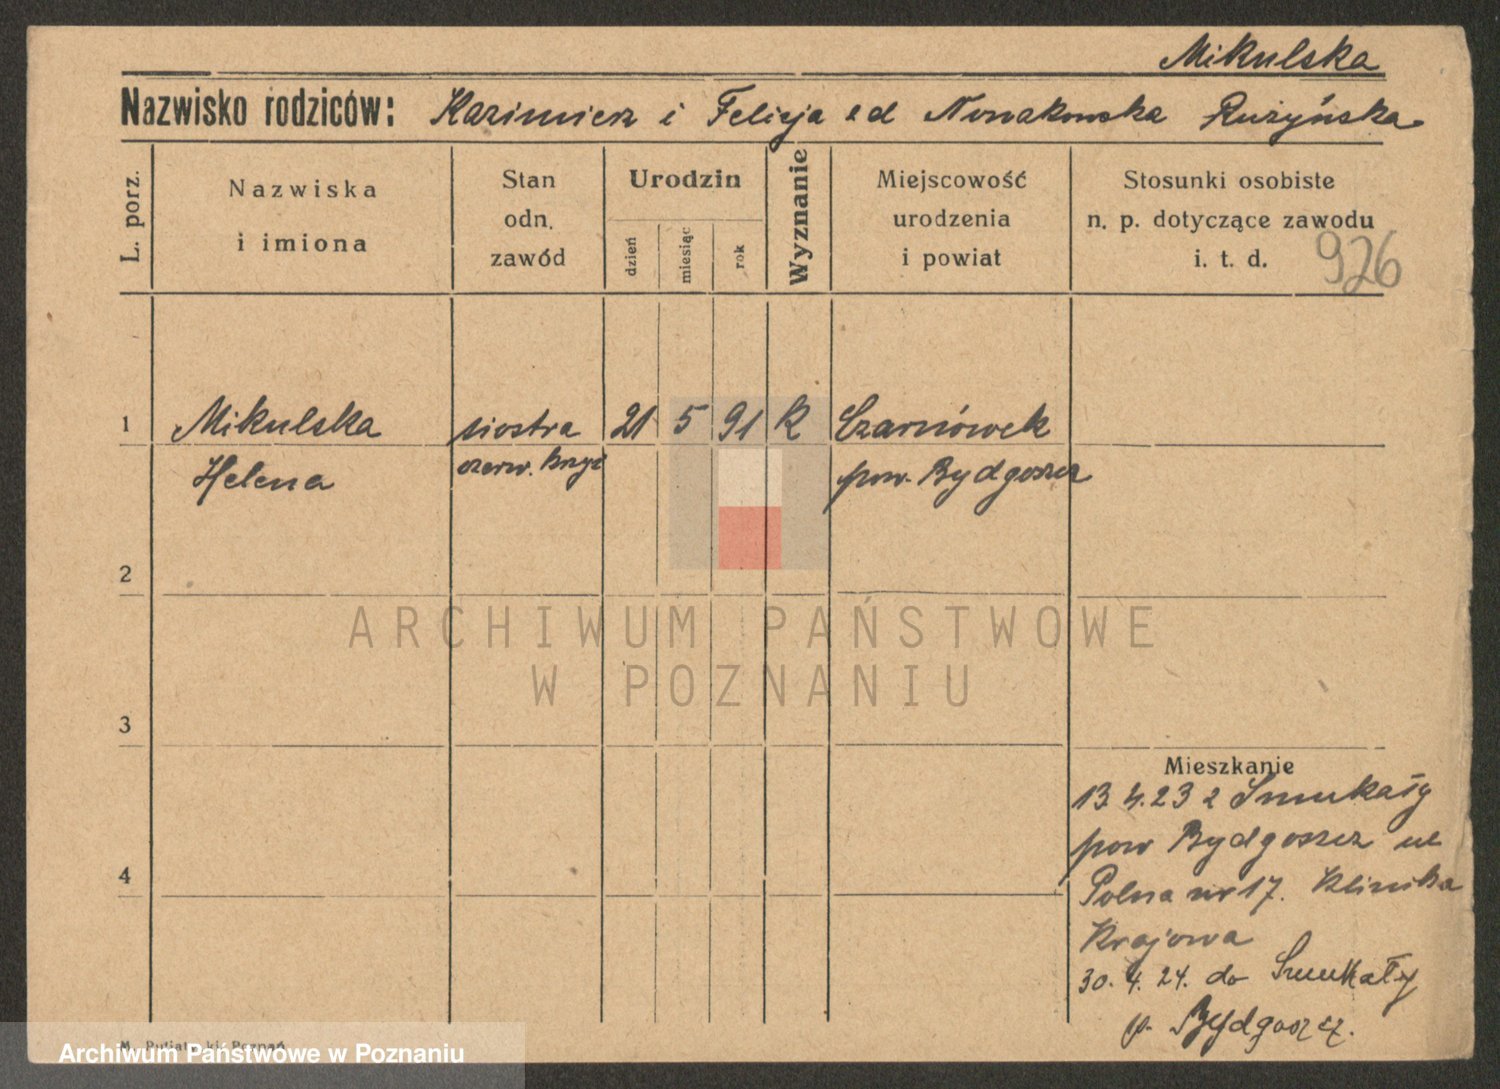 Mikulska
Nazwisko rodziców: Kazimierz i Felicja z d Nowakowska Rużyńska
L. porz.
Nazwiska
i imiona
Stan
odn.
zawód
Urodzin
dzień
miesiąc
rok
Wyznanie
Miejscowość
urodzenia
i powiat
Stosunki osobiste
n. p. dotyczące zawodu
i. t. d.
926
1
Mikulska siostra 21 5 91 K Czarnówek
Helena czerw. krzyż pow. Bydgoszcz
2
ARCHIWUM PAŃSTWOWE
W POZNANIU
3
4
Mieszkanie
13.4.23 z Smukały
pow Bydgoszcz ul
Polna nr 17. Klinika
Krajowa
30.4.24. do Smukały
p. Bydgoszcz.
Archiwum Państwowe w Poznaniu